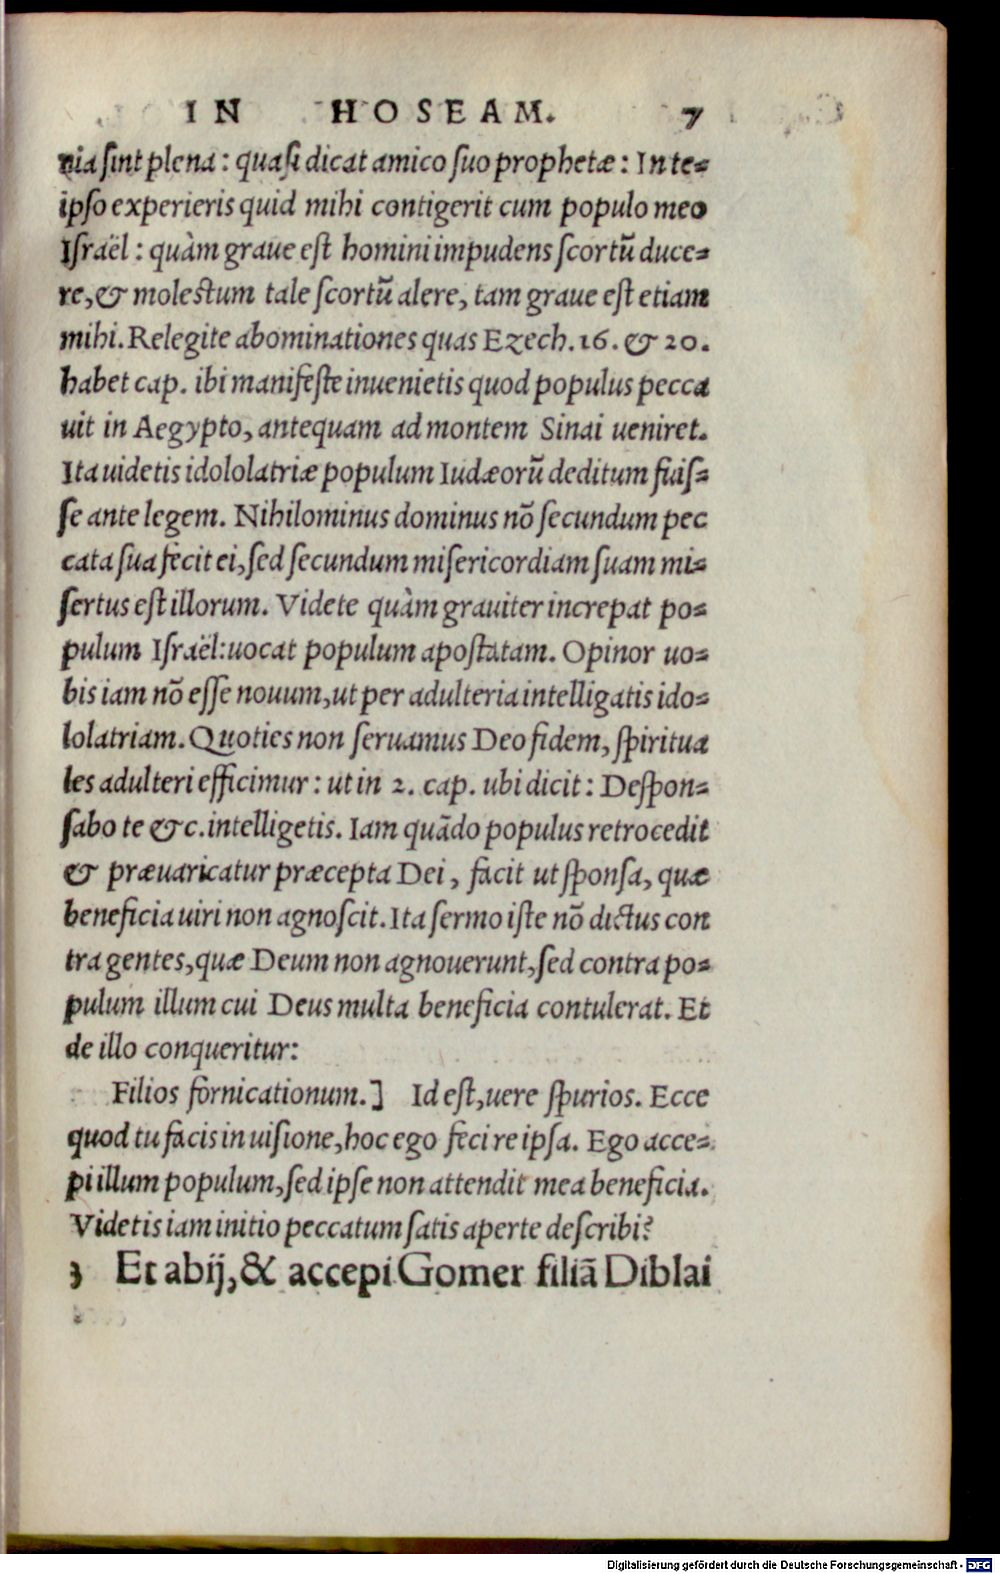 IN HOSEAM. 7
nia sint plena: quasi dicat amico suo prophetæ: In te=
ipso experieris quid mihi contigerit cum populo meo
Israël: quàm graue est homini impudens scortũ duce=
re, & molestum tale scortũ alere, tam graue est etiam
mihi. Relegite abominationes quas Ezech. 16. & 20.
habet cap. ibi manifeste inuenietis quod populus pecca
uit in Aegypto, antequam ad montem Sinai ueniret.
Ita uidetis idololatriæ populum Iudæorũ deditum fuis=
se ante legem. Nihilominus dominus nõ secundum pec
cata sua fecit ei, sed secundum misericordiam suam mi=
sertus est illorum. Videte quàm grauiter increpat po=
pulum Israël: uocat populum apostatam. Opinor uo=
bis iam nõ esse nouum, ut per adulteria intelligatis ido=
lolatriam. Quoties non seruamus Deo fidem, spiritua
les adulteri efficimur: ut in 2. cap. ubi dicit: Despon=
sabo te &c. intelligetis. Iam quãdo populus retrocedit
& præuaricatur præcepta Dei, facit ut sponsa, quæ
beneficia uiri non agnoscit. Ita sermo iste nõ dictus con
tra gentes, quæ Deum non agnouerunt, sed contra po=
pulum illum cui Deus multa beneficia contulerat. Et
de illo conqueritur:
Filios fornicationum.] Id est, uere spurios. Ecce
quod tu facis in uisione, hoc ego feci re ipsa. Ego acce=
pi illum populum, sed ipse non attendit mea beneficia.
Videtis iam initio peccatum satis aperte describi?
3 Et abij, & accepi Gomer filiã Diblai
Digitalisierung gefördert durch die Deutsche Forschungsgemeinschaft - DFG